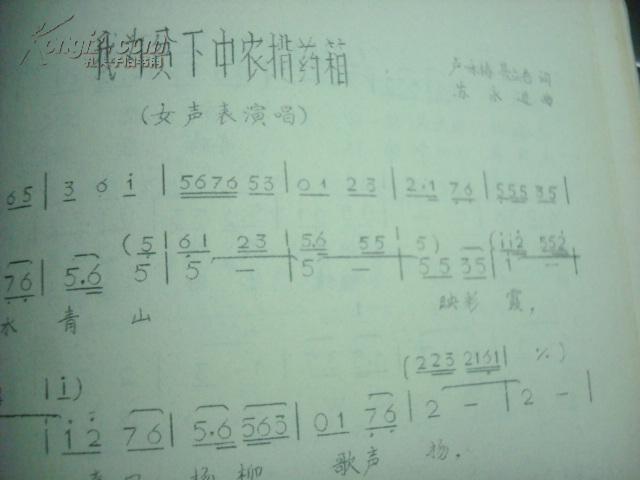 Kongfz.com
孔夫子旧书网
我为贫下中农背药箱
(女声表演唱)
词
苏永进 曲
65 | 3 6 i | 5676 53 | 01 23 | 2·1 76 | 555 35 |
76 | 5·6 (5 | 61 23 | 5·6 55 | 5) 55 35 | ii2 552 |
5 | 5 — | 5 — | 1 —
水 青 山 映彩 霞,
| i) (223 2161 | ٪)
| i2 76 | 5·6 563 | 01 76 | 2 — | 2 — |
杨 柳 歌声 扬.